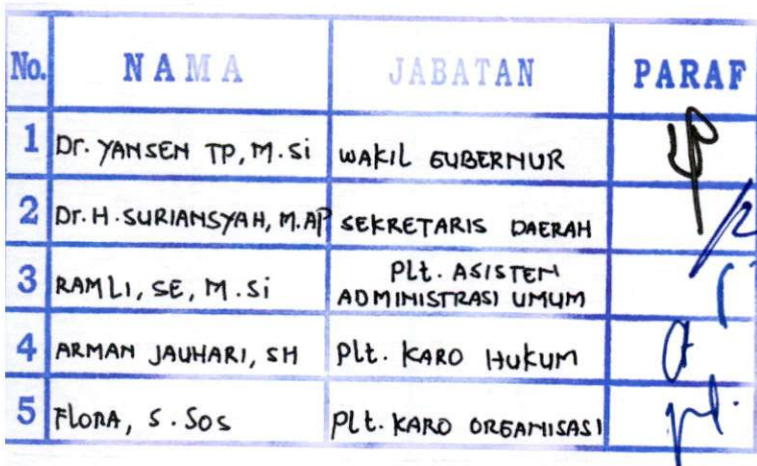 No. NAMA JABATAN PARAF
1 Dr. YANSEN TP, M.Si WAKIL GUBERNUR
2 Dr. H. SURIANSYAH, M.AP SEKRETARIS DAERAH
3 RAMLI, SE, M.Si Plt. ASISTEN
ADMINISTRASI UMUM
4 ARMAN JAUHARI, SH Plt. KARO HUKUM
5 FLORA, S.Sos Plt. KARO ORGANISASI